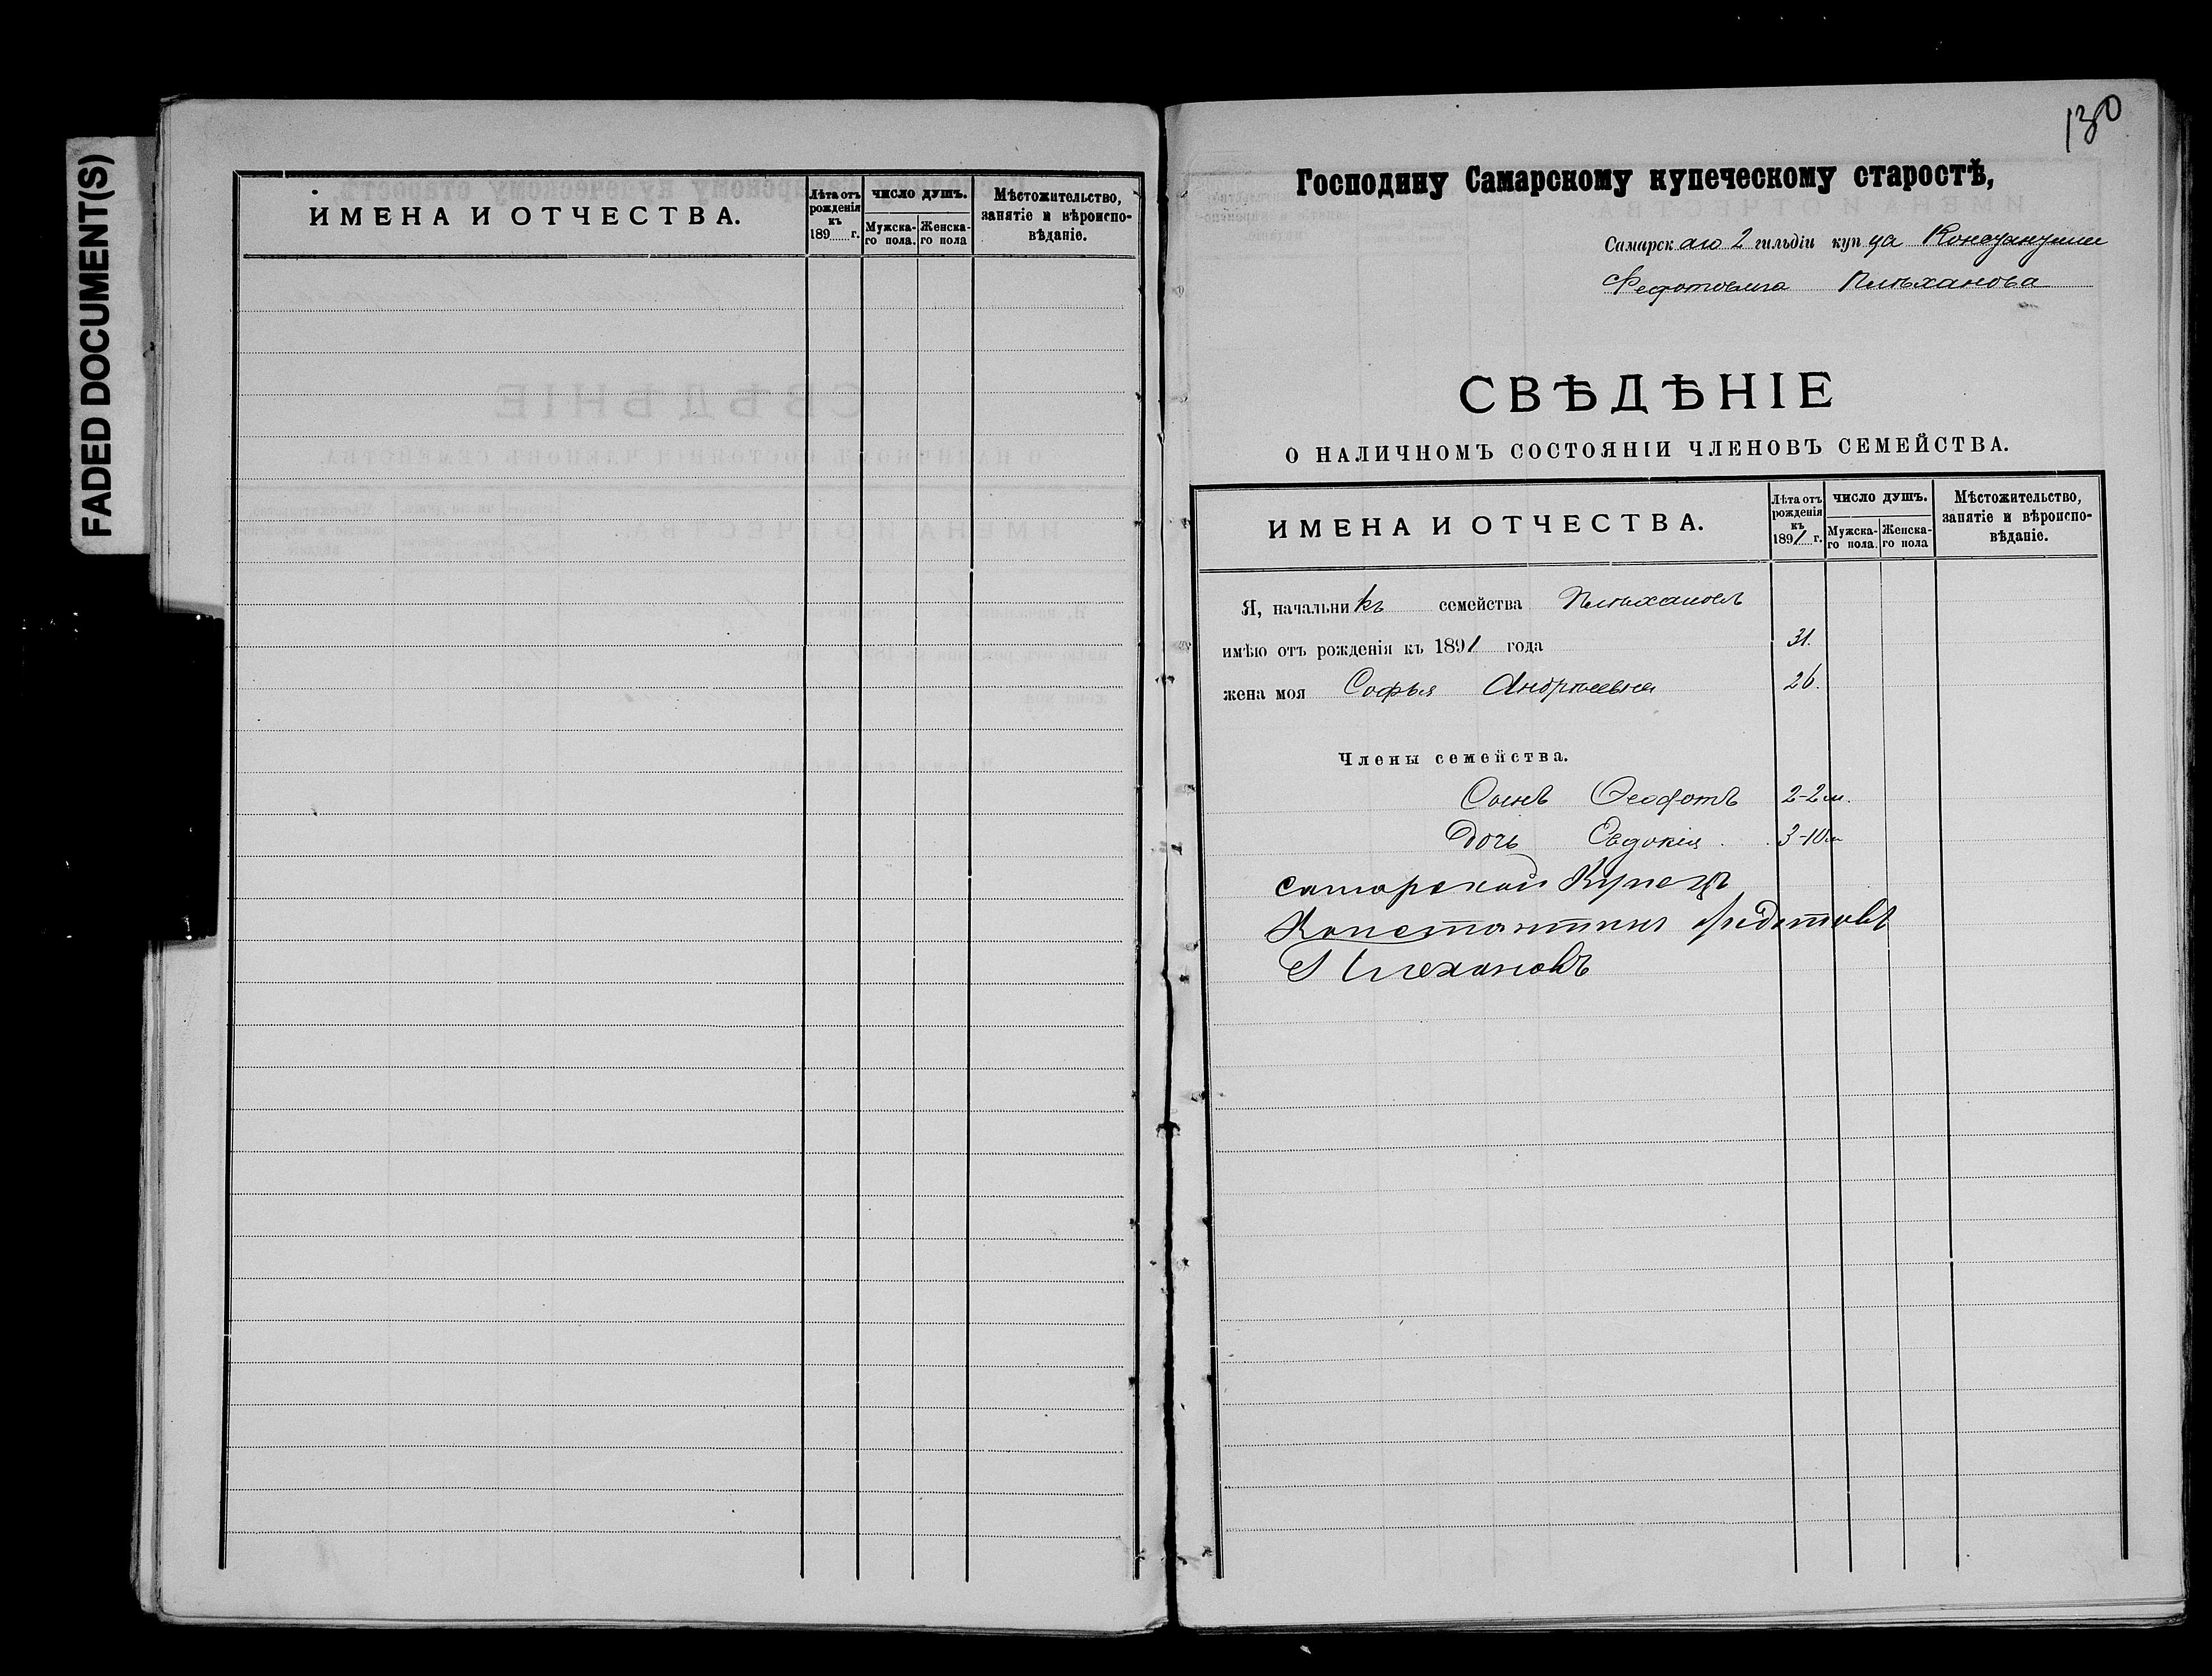 FADED DOCUMENT(S)
ИМЕНА И ОТЧЕСТВА.
Лѣта отъ рожденія къ 189 г.
ЧИСЛО ДУШЪ.
Мужска-го пола.
Женска-го пола
Мѣстожительство, занятіе и вѣроиспо-вѣданіе.
130
Господину Самарскому купеческому старостѣ,
Самарскаго 2 гильдіи купца Константина
Федотовича Плѣханова
СВѢДѢНІЕ
О НАЛИЧНОМЪ СОСТОЯНІИ ЧЛЕНОВЪ СЕМЕЙСТВА.
ИМЕНА И ОТЧЕСТВА.
Лѣта отъ рожденія къ 1891 г.
ЧИСЛО ДУШЪ.
Мужска-го пола.
Женска-го пола
Мѣстожительство, занятіе и вѣроиспо-вѣданіе.
Я, начальникъ семейства Плѣхановъ
имѣю отъ рожденія къ 1891 года 31.
жена моя Софья Андреевна 26.
Члены семейства.
Сынъ Феофотъ 2-2 м.
Дочь Евдокія 3-10 м
Самарской Купецъ
Константинъ Федотовъ
Плехановъ